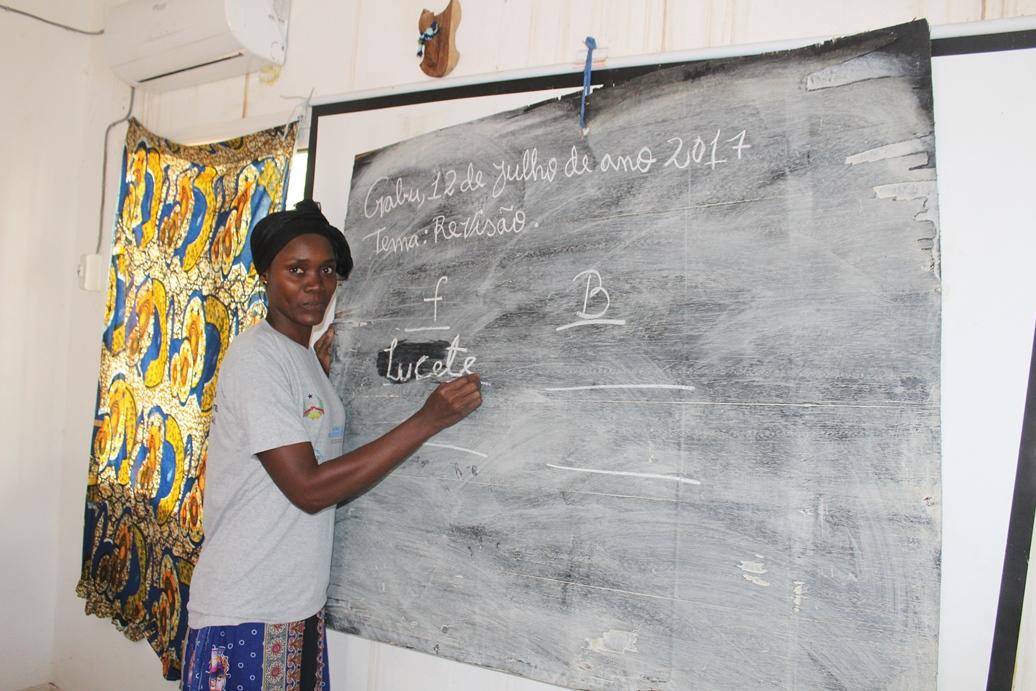 Gabu, 12 de Julho de ano 2017
Tema: Revisão.
f B
Lucete